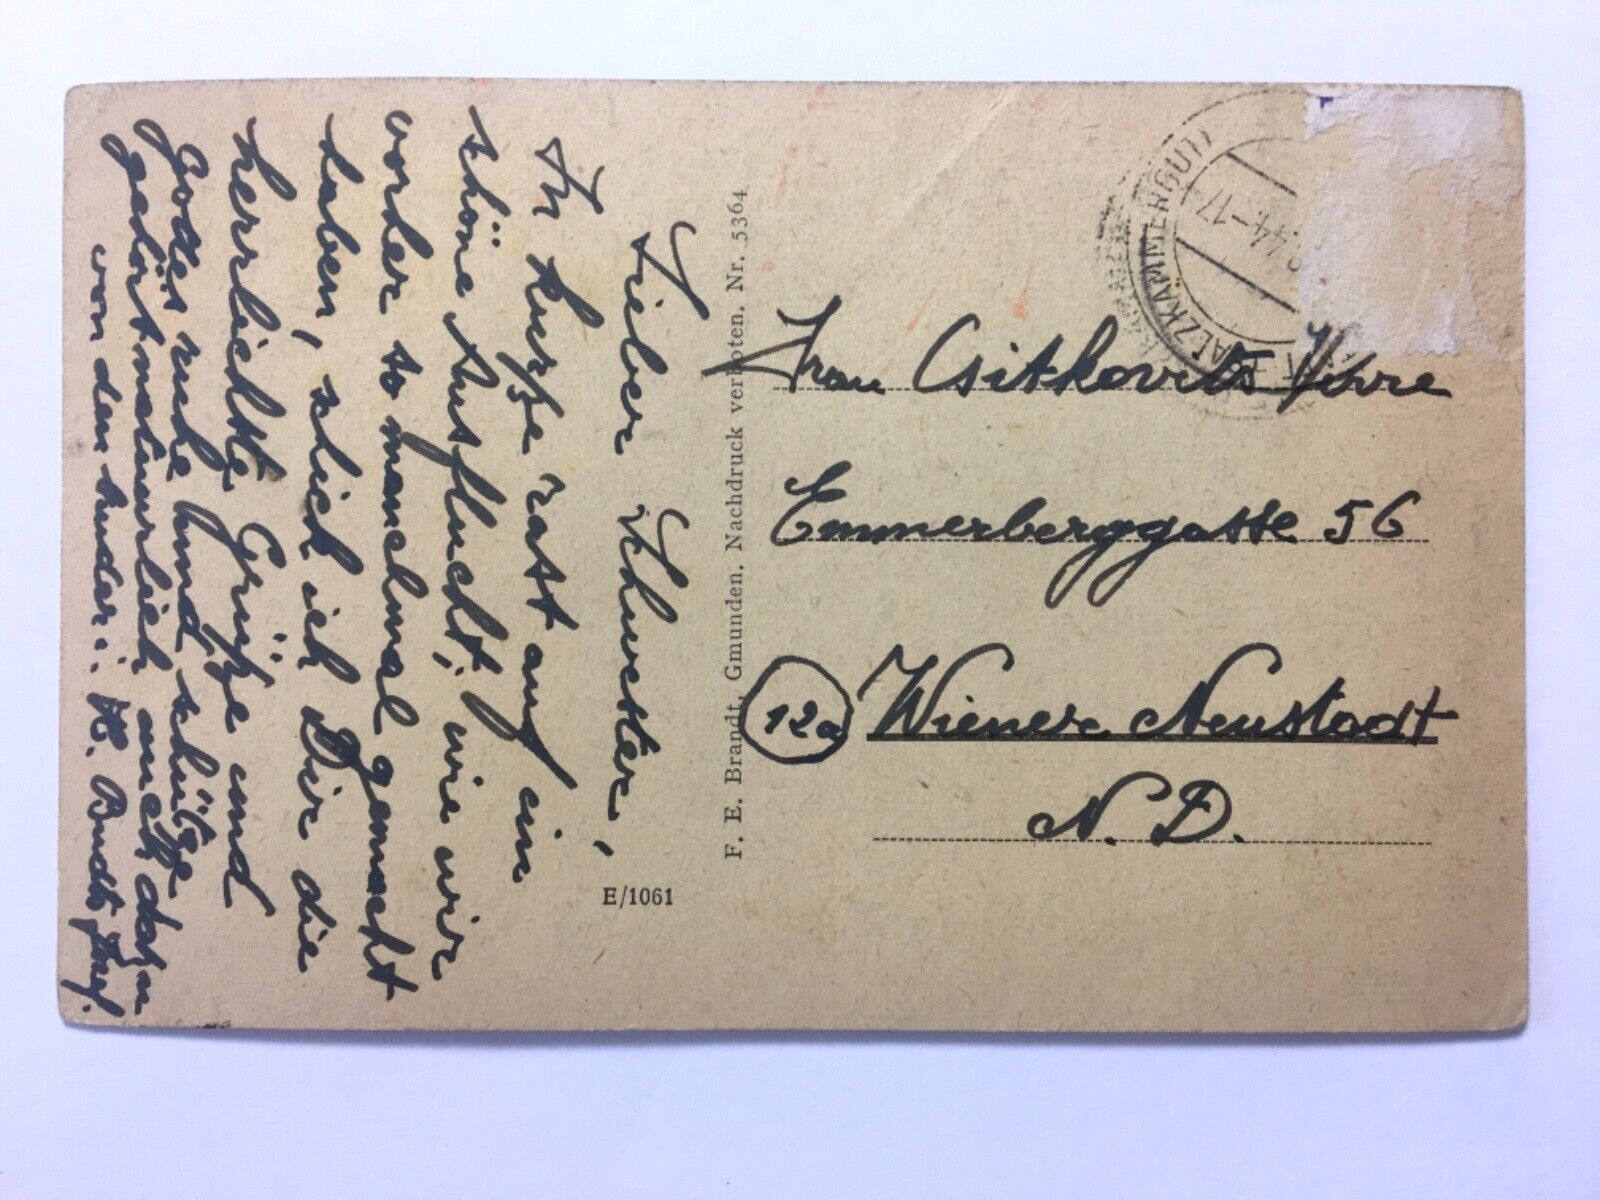 Lieber Schwester,
In kurze rast auf ein
schöne Ausflucht, wie wir
vorher so manchmal gemacht
haben, schick ich Dir die
herrlichste Grüße und
Godes ruhe und schütze
gehört natürlich auch dazu
von dein bruder: Josef.
F. E. Brandt, Gmunden. Nachdruck verboten. Nr. 5364
E/1061
SALZKAMMERGUT
44-17
Frau Csitkovits
Emmerberggasse 56
12a Wiener Neustadt
N. D.